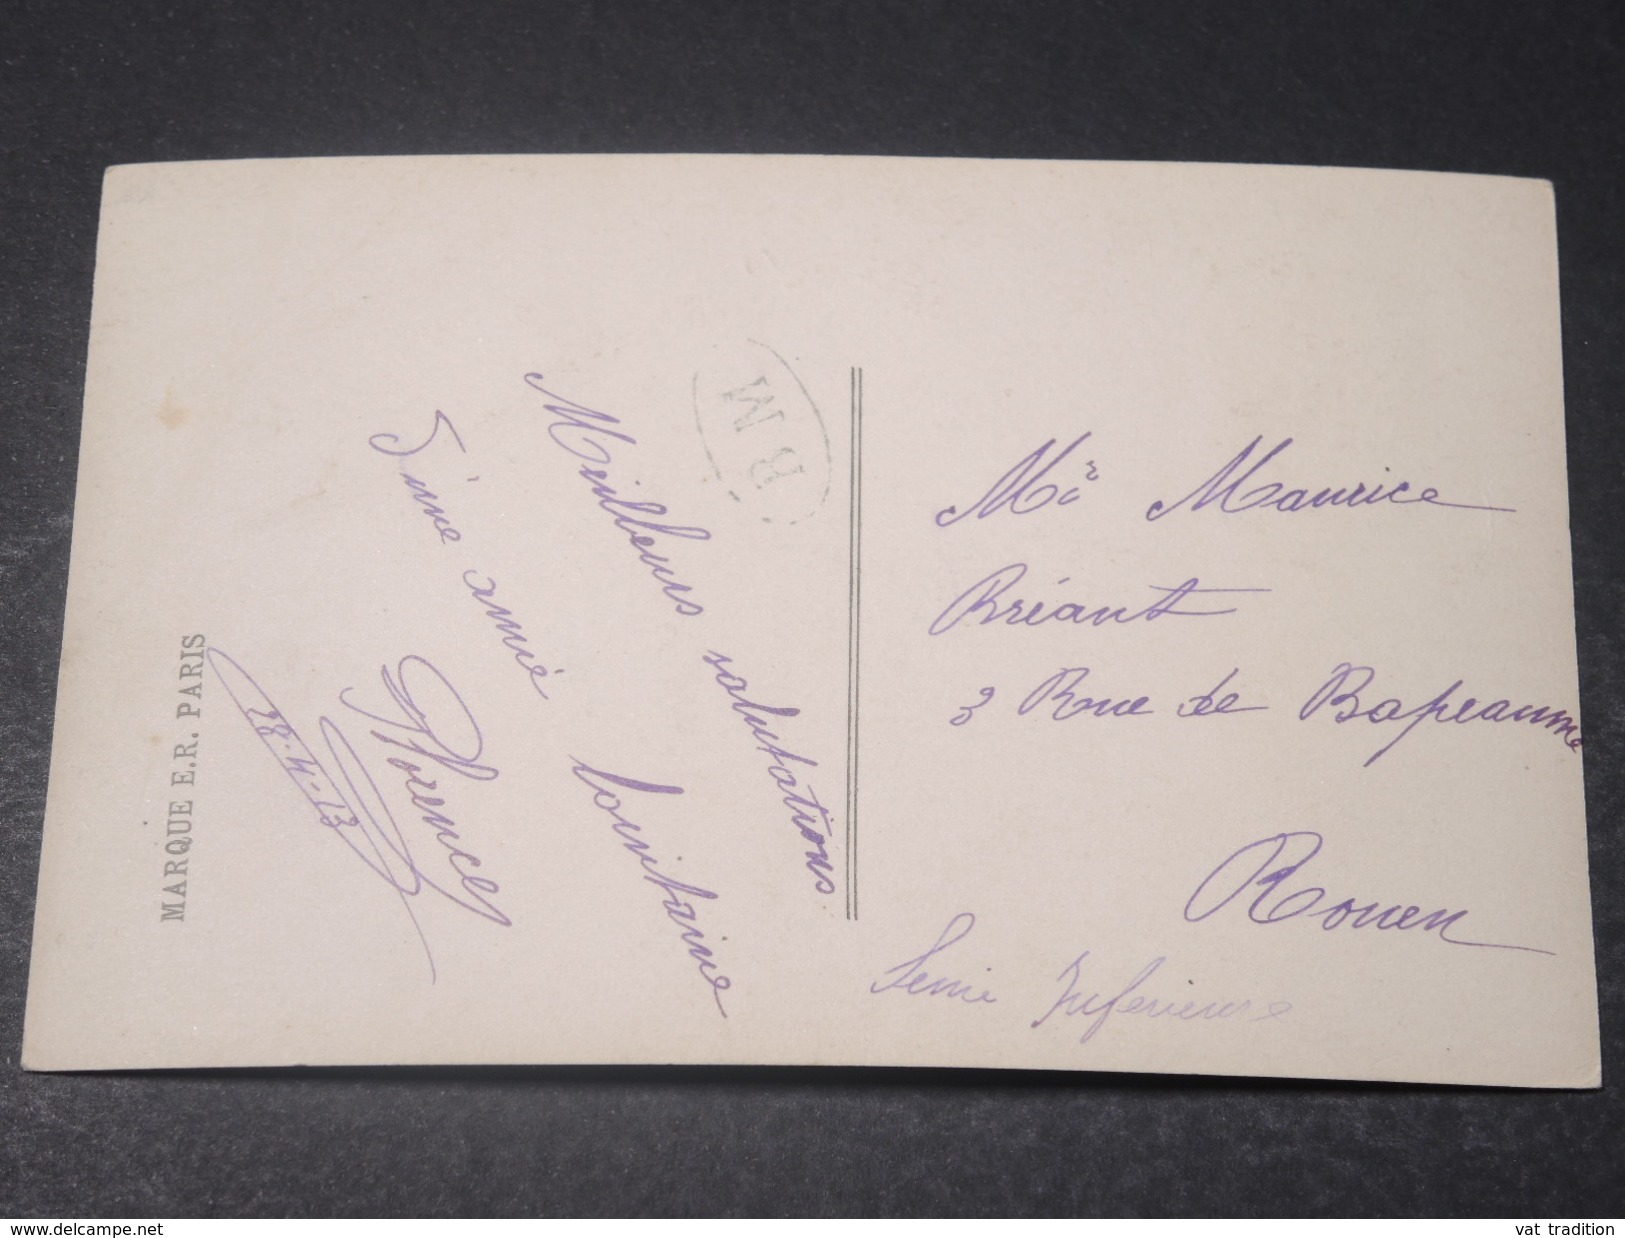 MARQUE E.R. PARIS
Meilleurs salutations
d'une amie lointaine
Florence
28.4.13
BM
Mr Maurice
Bréant
3 Rue de Bapeaume
Rouen
Seine Inferieure
www.delcampe.net
vat tradition